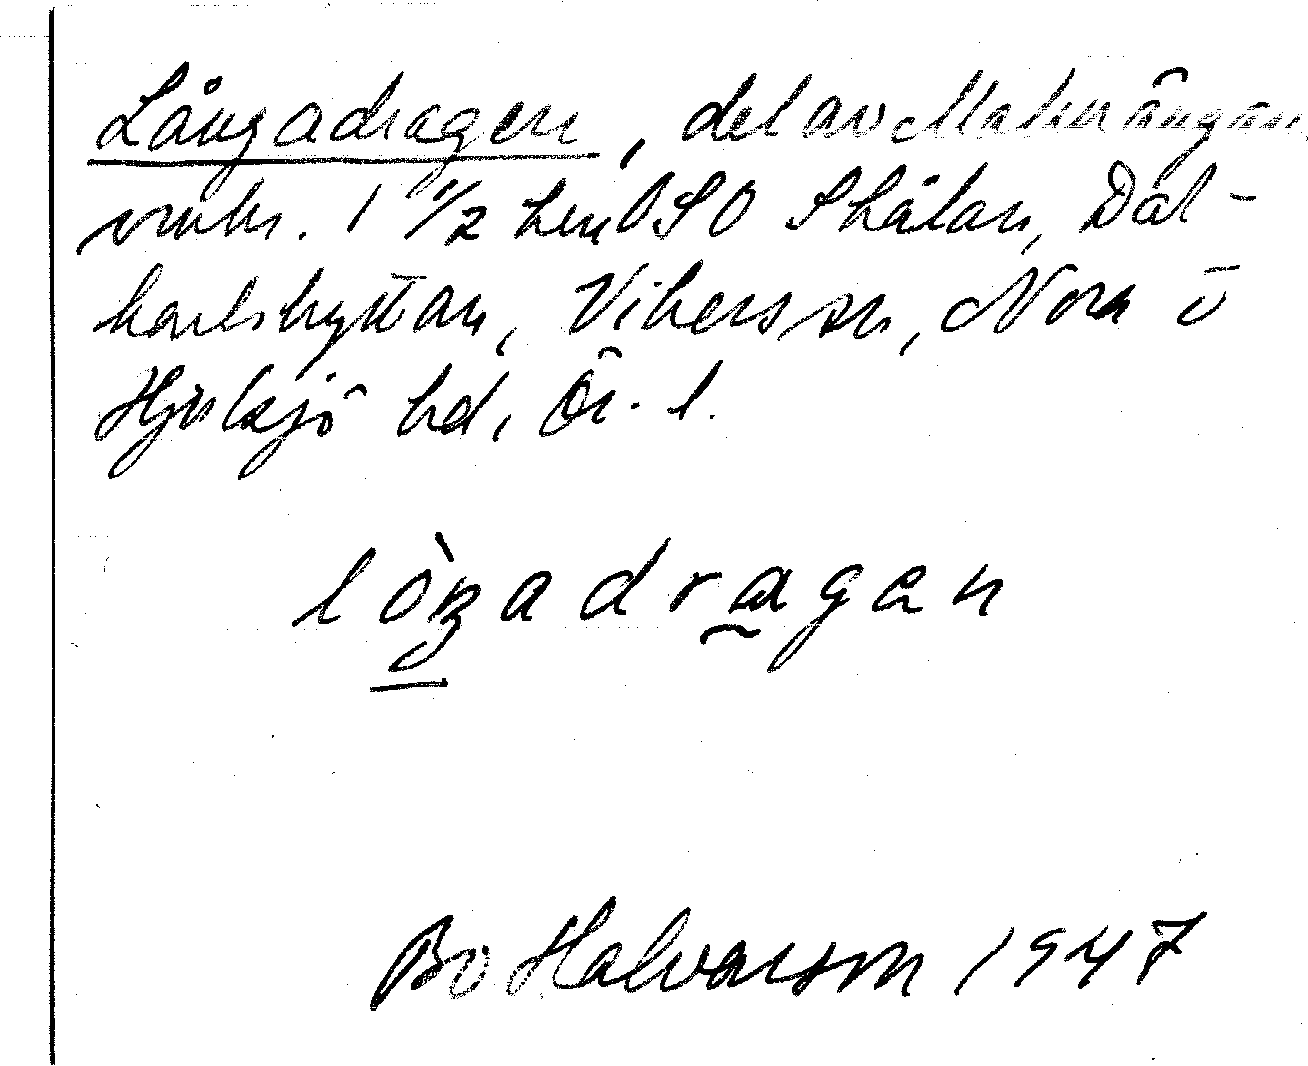 Långadragen, del av Malmängan,
omkr. 1 1/2 km OSO Skålan, Dal-
karlshyttan, Vikers sn, Nora o
Hjulsjö hd, Ör. l.
lòŋadragan
Bo Halvarson 1947